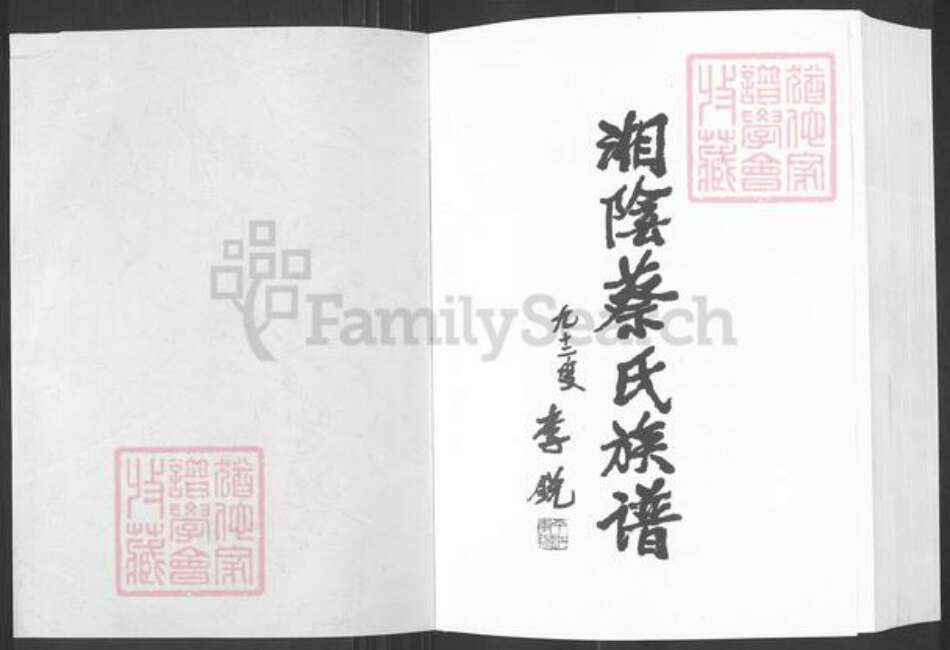 湘陰蔡氏族譜
九十二叟
李锐
猶他家譜學會收藏
猶他家譜學會收藏
FamilySearch